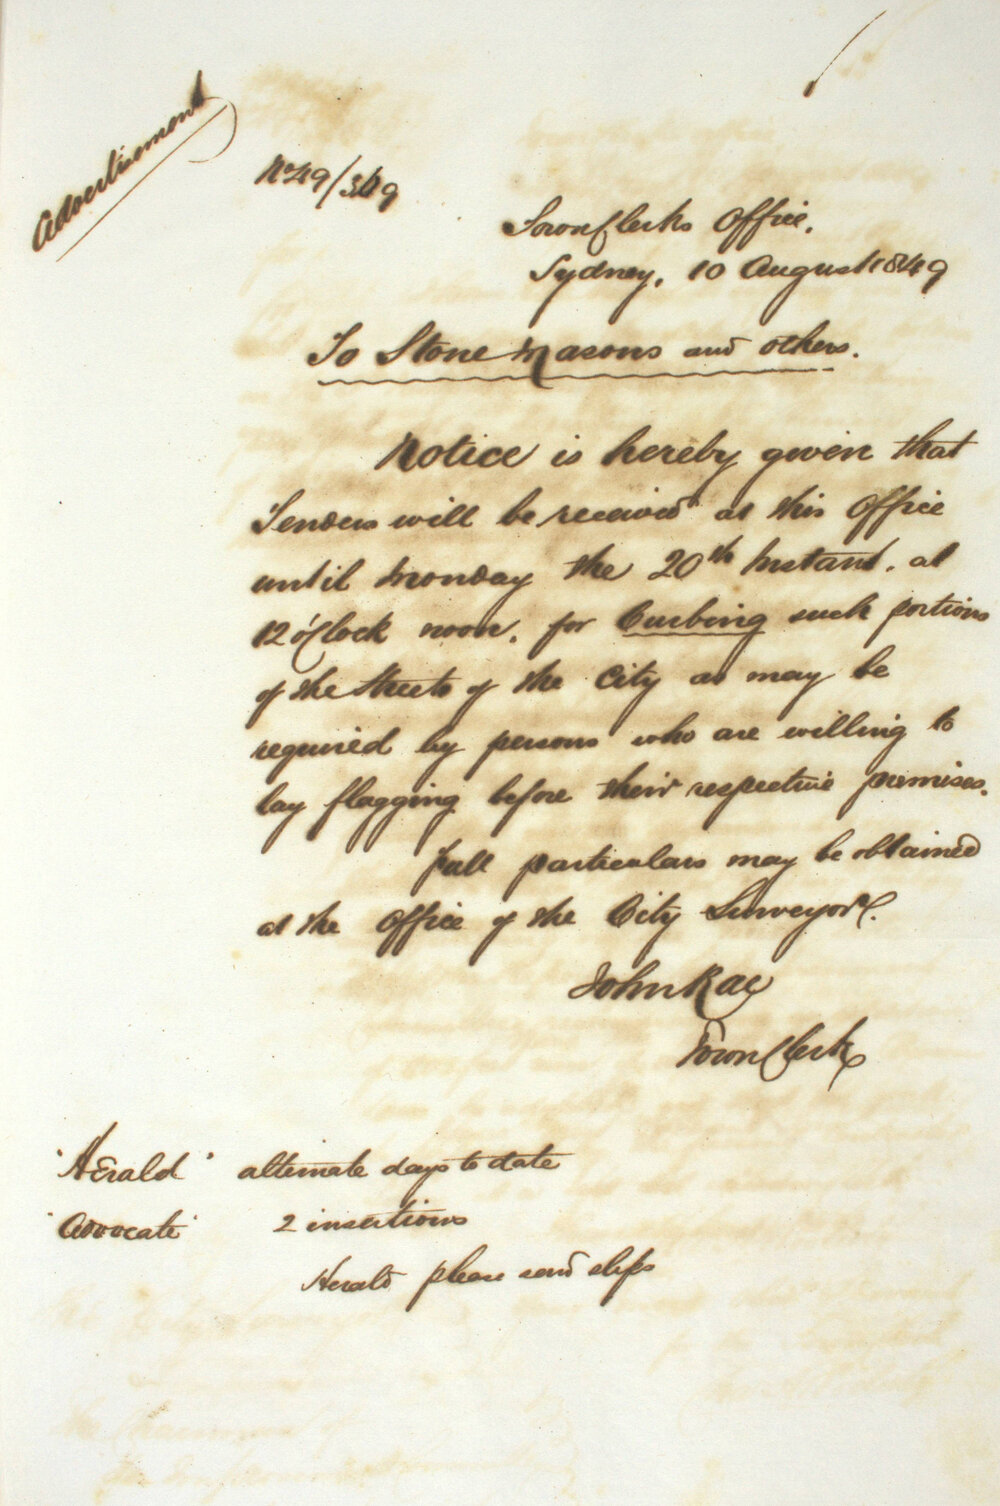 Advertisement
No 49/349
Town Clerks Office,
Sydney, 10 August 1849
To Stone Masons and others.
Notice is hereby given that
Tenders will be received at this Office
until Monday the 20th Instant, at
12 o'Clock noon, for Curbing such portions
of the Streets of the City as may be
required by persons who are willing to
lay flagging before their respective premises.
Full particulars may be obtained
at the Office of the City Surveyor.
John Rae
Town Clerk
"Herald" alternate days to date
"Advocate" 2 insertions
Herald please send slips